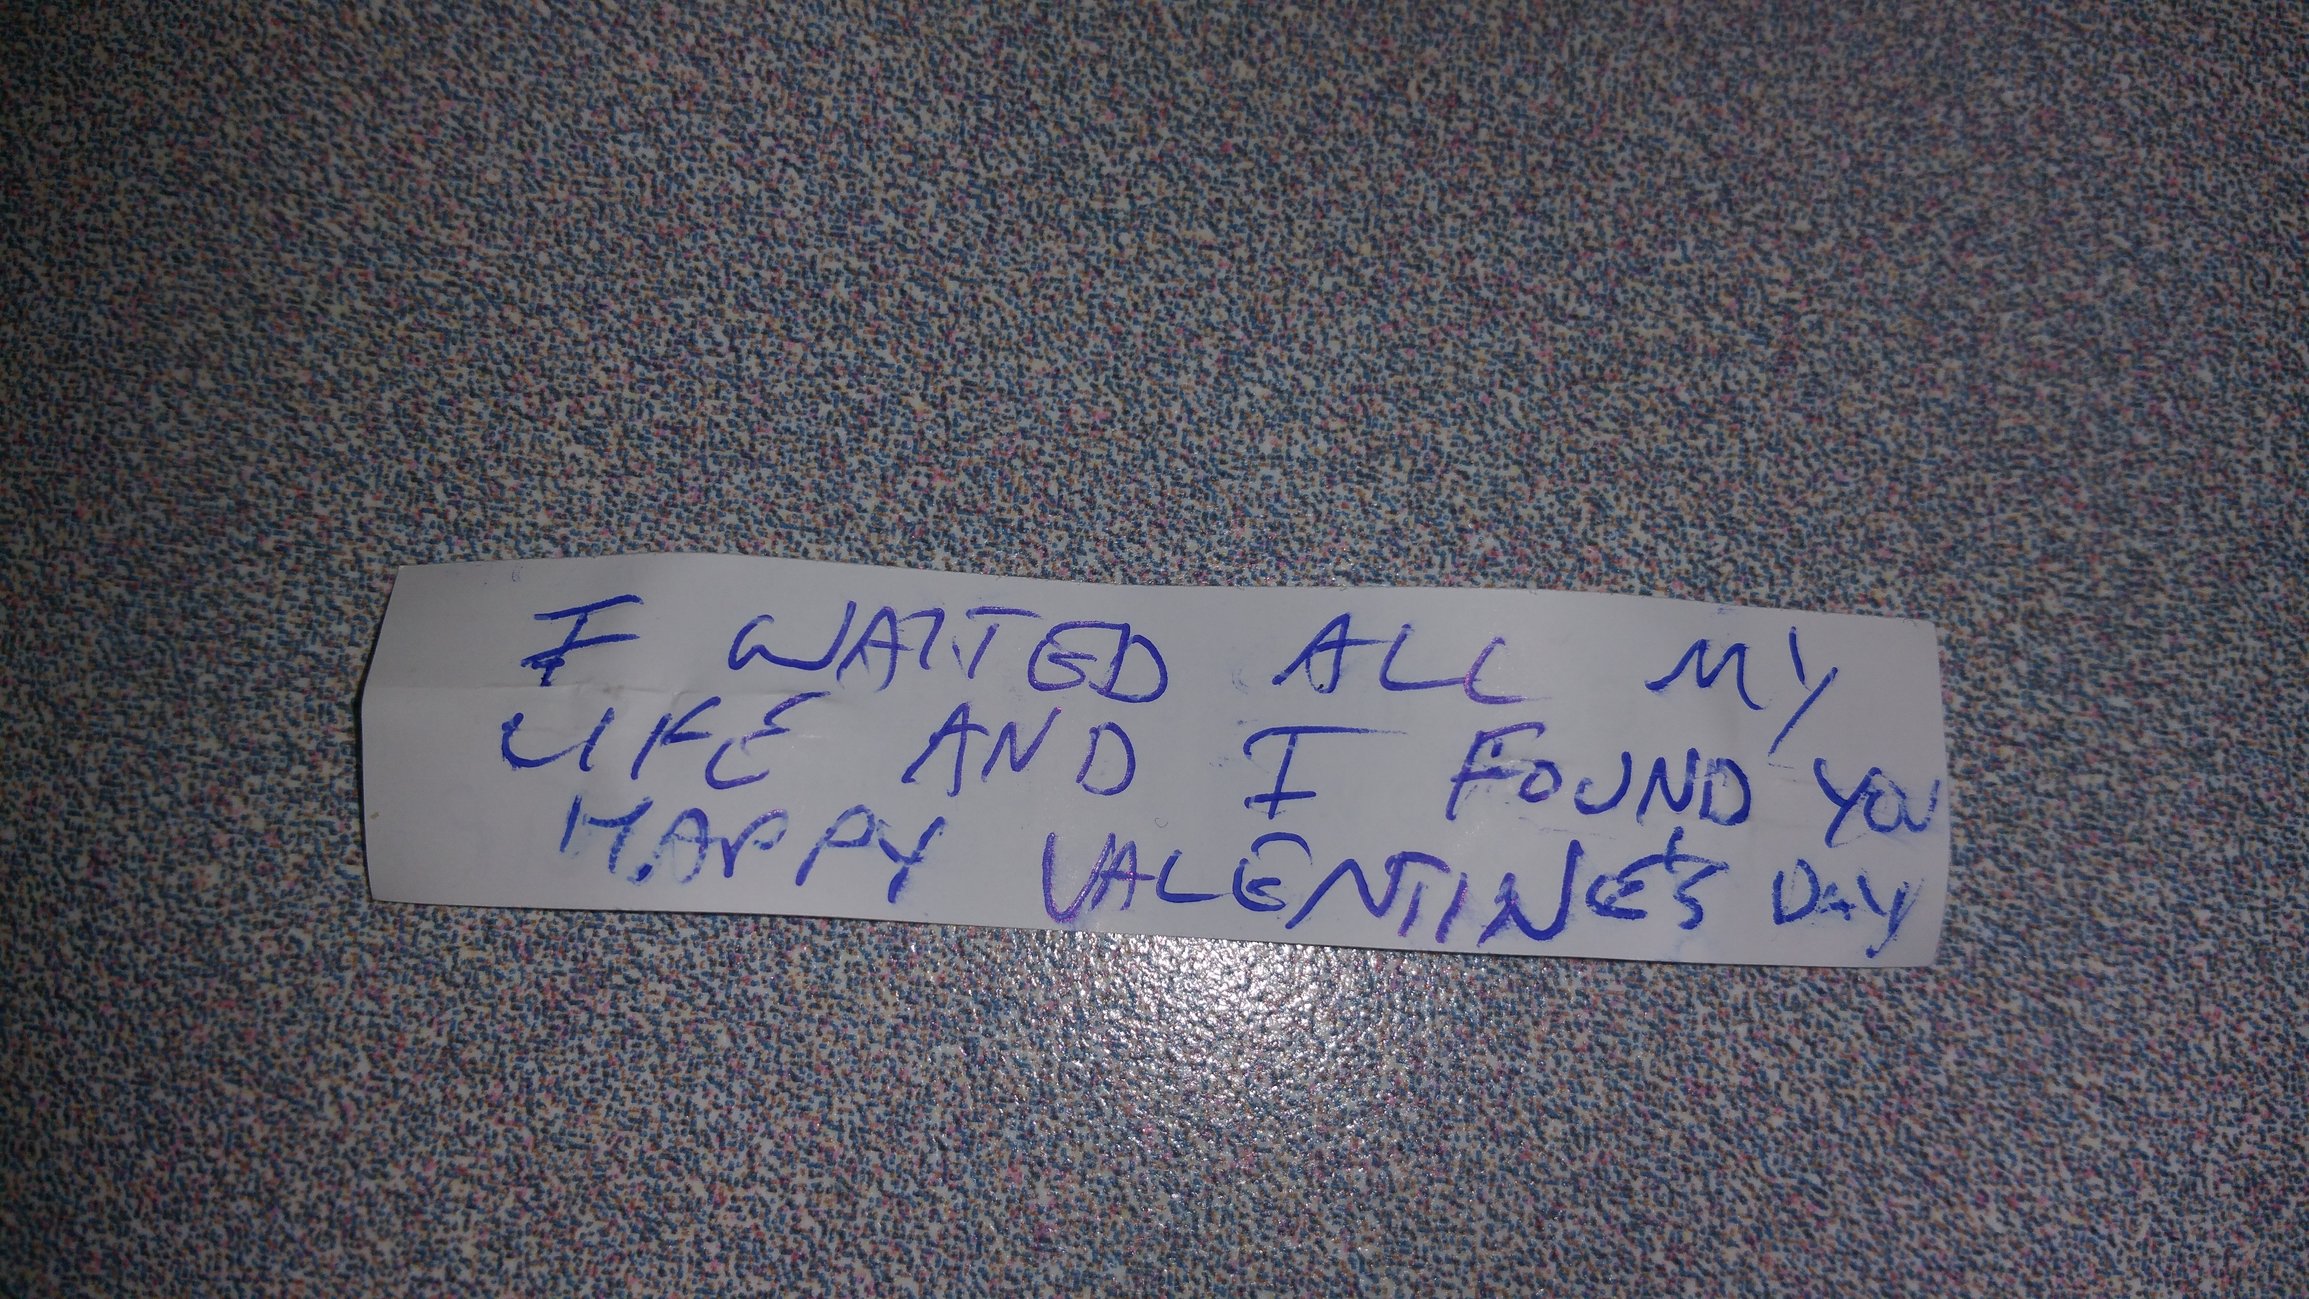 I WAITED ALL MY
LIFE AND I FOUND YOU
HAPPY VALENTINE'S DAY